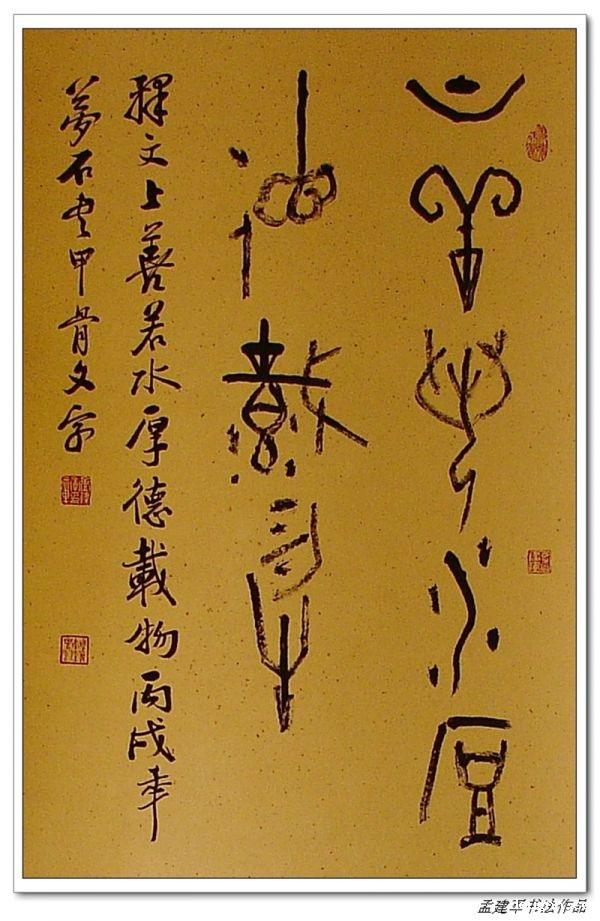 上善若水厚
德載物
釋文上善若水厚德載物丙戌年
夢石書甲骨文字
孟建平书法作品